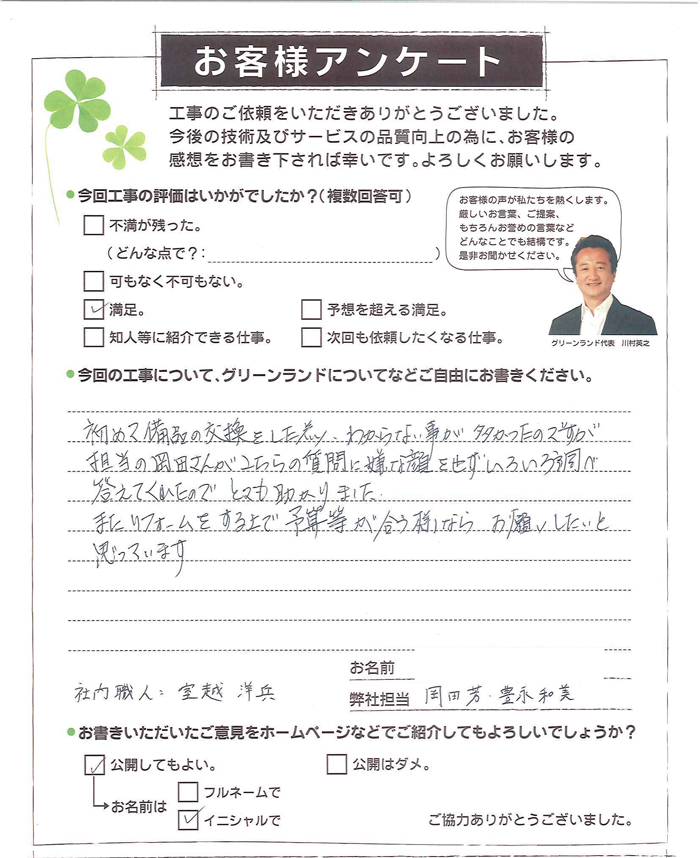 お客様アンケート
工事のご依頼をいただきありがとうございました。
今後の技術及びサービスの品質向上の為に、お客様の
感想をお書き下されば幸いです。よろしくお願いします。
今回工事の評価はいかがでしたか？（複数回答可）
不満が残った。
（どんな点で？： ）
可もなく不可もない。
満足。
予想を超える満足。
知人等に紹介できる仕事。
次回も依頼したくなる仕事。
お客様の声が私たちを熱くします。
厳しいお言葉、ご提案、
もちろんお誉めの言葉など
どんなことでも結構です。
是非お聞かせください。
グリーンランド代表 川村英之
今回の工事について、グリーンランドについてなどご自由にお書きください。
初めて備品の交換をした為、わからない事が多かったのですが
担当の岡田さんがこちらの質問に嫌な顔をせずいろいろ調べ
答えてくれたので とても助かりました。
またリフォームをする上で予算等が合う様なら お願いしたいと
思っています
お名前
社内職人：室越 洋兵
弊社担当 岡田芳・豊永和美
お書きいただいたご意見をホームページなどでご紹介してもよろしいでしょうか？
公開してもよい。
公開はダメ。
お名前は
フルネームで
イニシャルで
ご協力ありがとうございました。